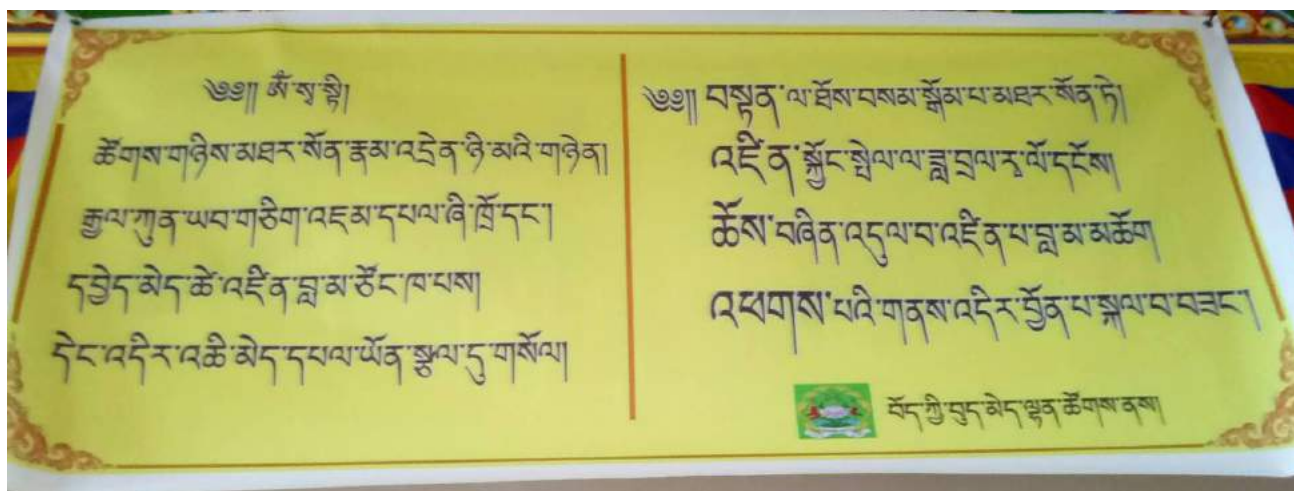 ༄༅།། ཨོཾ་སྭ་སྟི།
ཚོགས་གཉིས་མཐར་སོན་རྣམ་འདྲེན་ཉི་མའི་གཉེན།
རྒྱལ་ཀུན་ཡབ་གཅིག་འཇམ་དཔལ་ཞི་ཁྲོ་དང་།
དབྱེད་མེད་ཚེ་འཛིན་བླ་མ་ཙོང་ཁ་པས།
དེང་འདིར་འཆི་མེད་དཔལ་ཡོན་སྩལ་དུ་གསོལ།
༄༅།། བསྟན་ལ་ཐོས་བསམ་སྒོམ་པ་མཐར་སོན་ཏེ།
འཛིན་སྐྱོང་སྤེལ་ལ་ཟླ་བྲལ་རྭ་ལོ་དངོས།
ཆོས་བཞིན་འདུལ་བ་འཛིན་པ་བླ་མ་མཆོག
འཕགས་པའི་གནས་འདིར་བྱོན་པ་སྐལ་བ་བཟང་།
བོད་ཀྱི་བུད་མེད་ལྷན་ཚོགས་ནས།